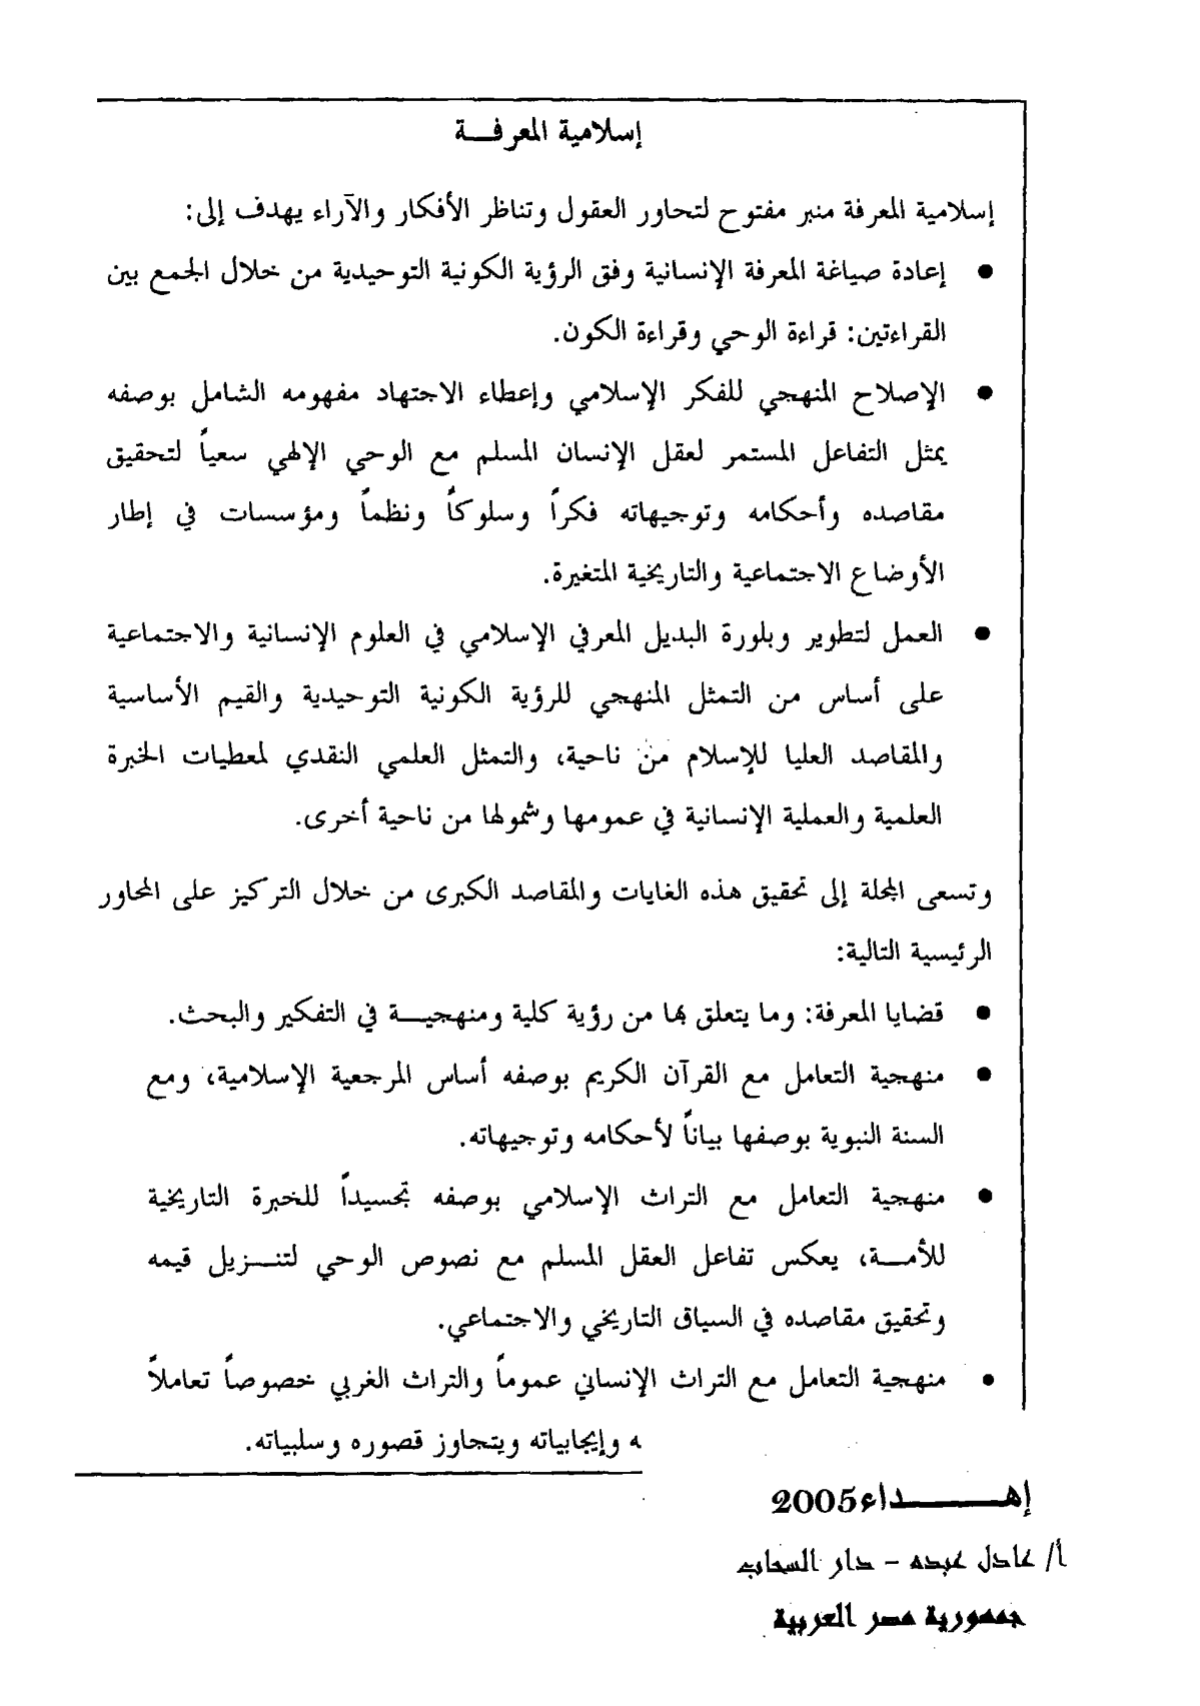 إسلامية المعرفـــة
إسلامية المعرفة منبر مفتوح لتحاور العقول وتناظر الأفكار والآراء يهدف إلى:
● إعادة صياغة المعرفة الإنسانية وفق الرؤية الكونية التوحيدية من خلال الجمع بين
القراءتين: قراءة الوحي وقراءة الكون.
● الإصلاح المنهجي للفكر الإسلامي وإعطاء الاجتهاد مفهومه الشامل بوصفه
يمثل التفاعل المستمر لعقل الإنسان المسلم مع الوحي الإلهي سعياً لتحقيق
مقاصده وأحكامه وتوجيهاته فكراً وسلوكاً ونظماً ومؤسسات في إطار
الأوضاع الاجتماعية والتاريخية المتغيرة.
● العمل لتطوير وبلورة البديل المعرفي الإسلامي في العلوم الإنسانية والاجتماعية
على أساس من التمثل المنهجي للرؤية الكونية التوحيدية والقيم الأساسية
والمقاصد العليا للإسلام من ناحية، والتمثل العلمي النقدي لمعطيات الخبرة
العلمية والعملية الإنسانية في عمومها وشمولها من ناحية أخرى.
وتسعى المجلة إلى تحقيق هذه الغايات والمقاصد الكبرى من خلال التركيز على المحاور
الرئيسية التالية:
● قضايا المعرفة: وما يتعلق بها من رؤية كلية ومنهجيـــة في التفكير والبحث.
● منهجية التعامل مع القرآن الكريم بوصفه أساس المرجعية الإسلامية، ومع
السنة النبوية بوصفها بياناً لأحكامه وتوجيهاته.
● منهجية التعامل مع التراث الإسلامي بوصفه تجسيداً للخبرة التاريخية
للأمـــة، يعكس تفاعل العقل المسلم مع نصوص الوحي لتنـــزيل قيمه
وتحقيق مقاصده في السياق التاريخي والاجتماعي.
● منهجية التعامل مع التراث الإنساني عموماً والتراث الغربي خصوصاً تعاملاً
وإيجابياته ويتجاوز قصوره وسلبياته.
إهـــــــداء2005
أ/ عادل عبده - دار السحاب
جمهورية مصر العربية